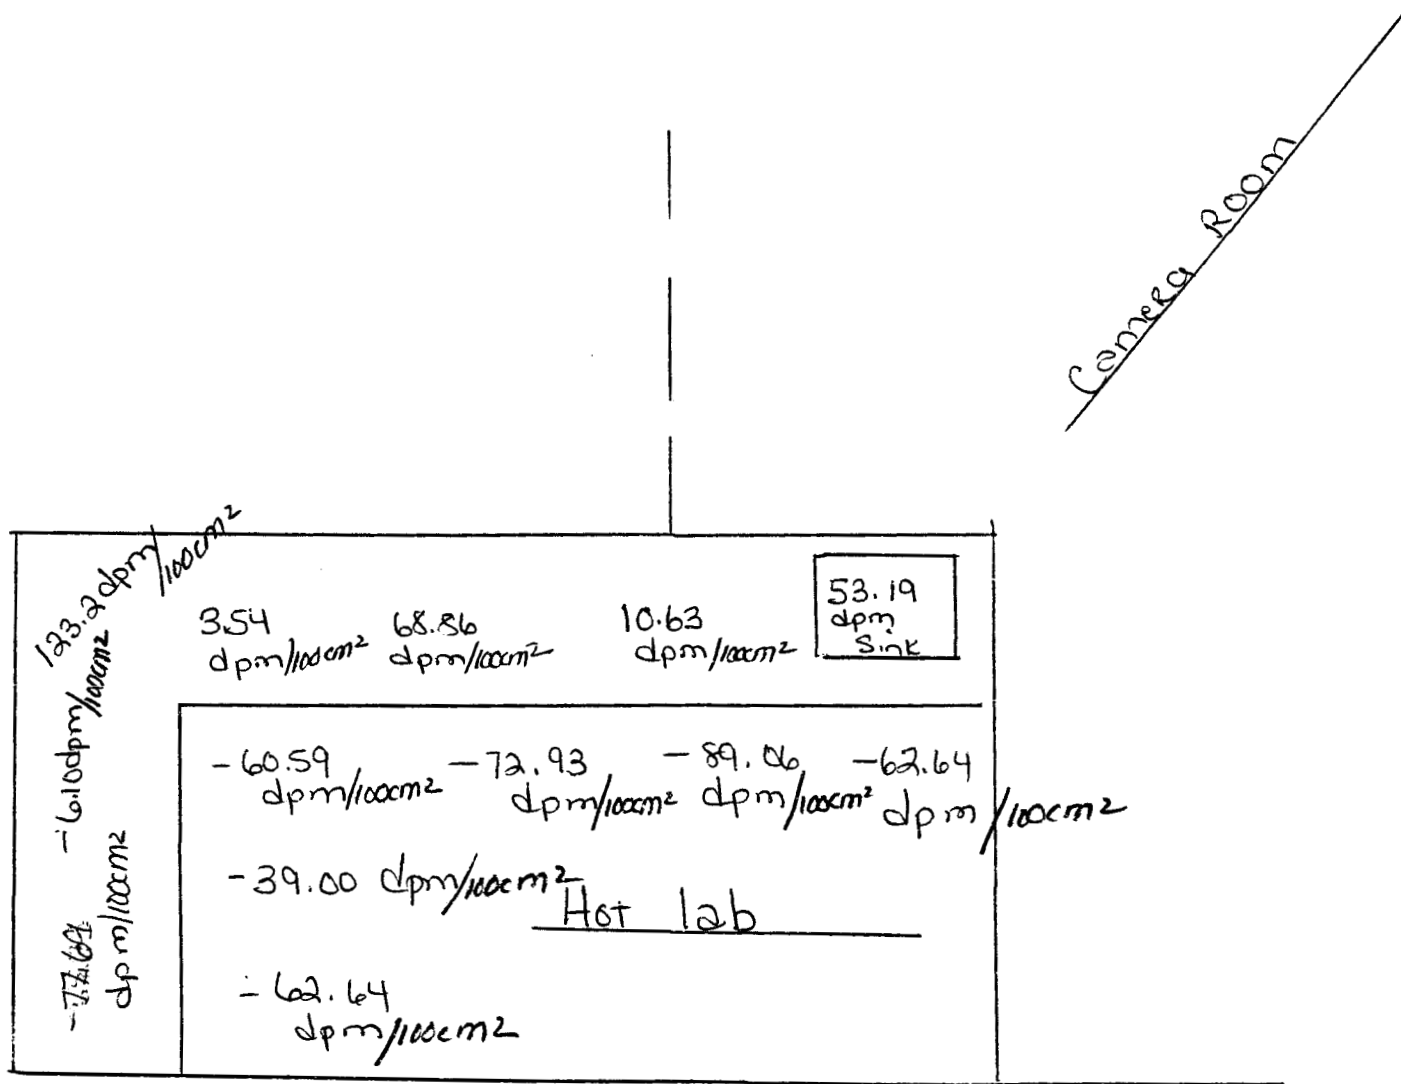 Camera Room
123.2 dpm/100cm²
3.54
dpm/100cm²
68.86
dpm/100cm²
10.63
dpm/100cm²
53.19
dpm
Sink
-6.10 dpm/100cm²
dpm/100cm²
-60.59
dpm/100cm²
-72.93
dpm/100cm²
-89.06
dpm/100cm²
-62.64
dpm/100cm²
-39.00 dpm/100cm²
Hot lab
-62.64
dpm/100cm²